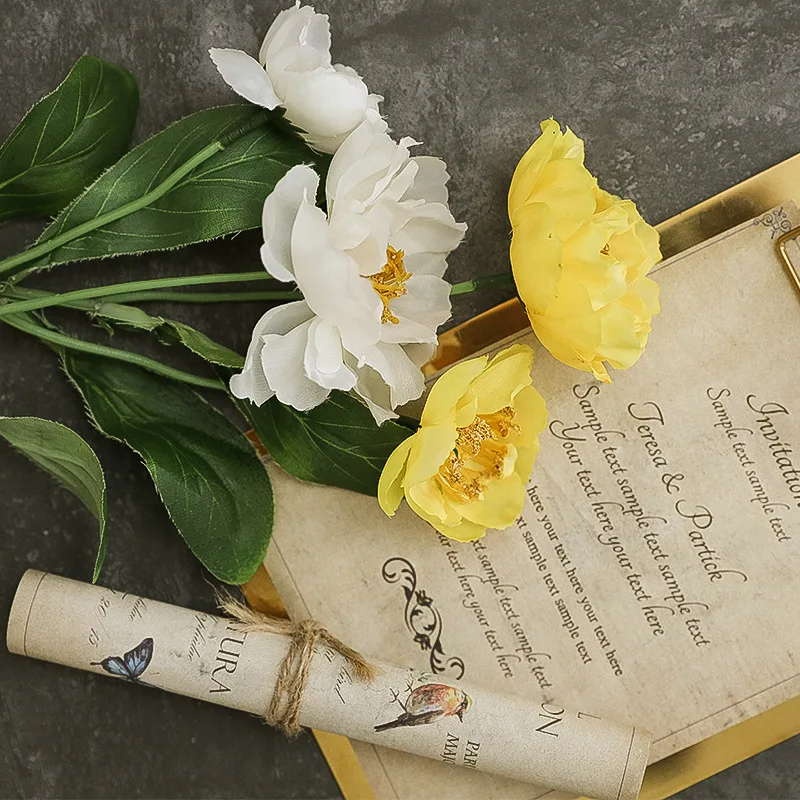 Invitation
Sample text sample text
Teresa & Partick
Sample text sample text sample text
Your text here your text here
here your text here your text here
xt sample text sample text
sample text sample text
text here your text here
TURA
bird
ON
PARI
MAIO